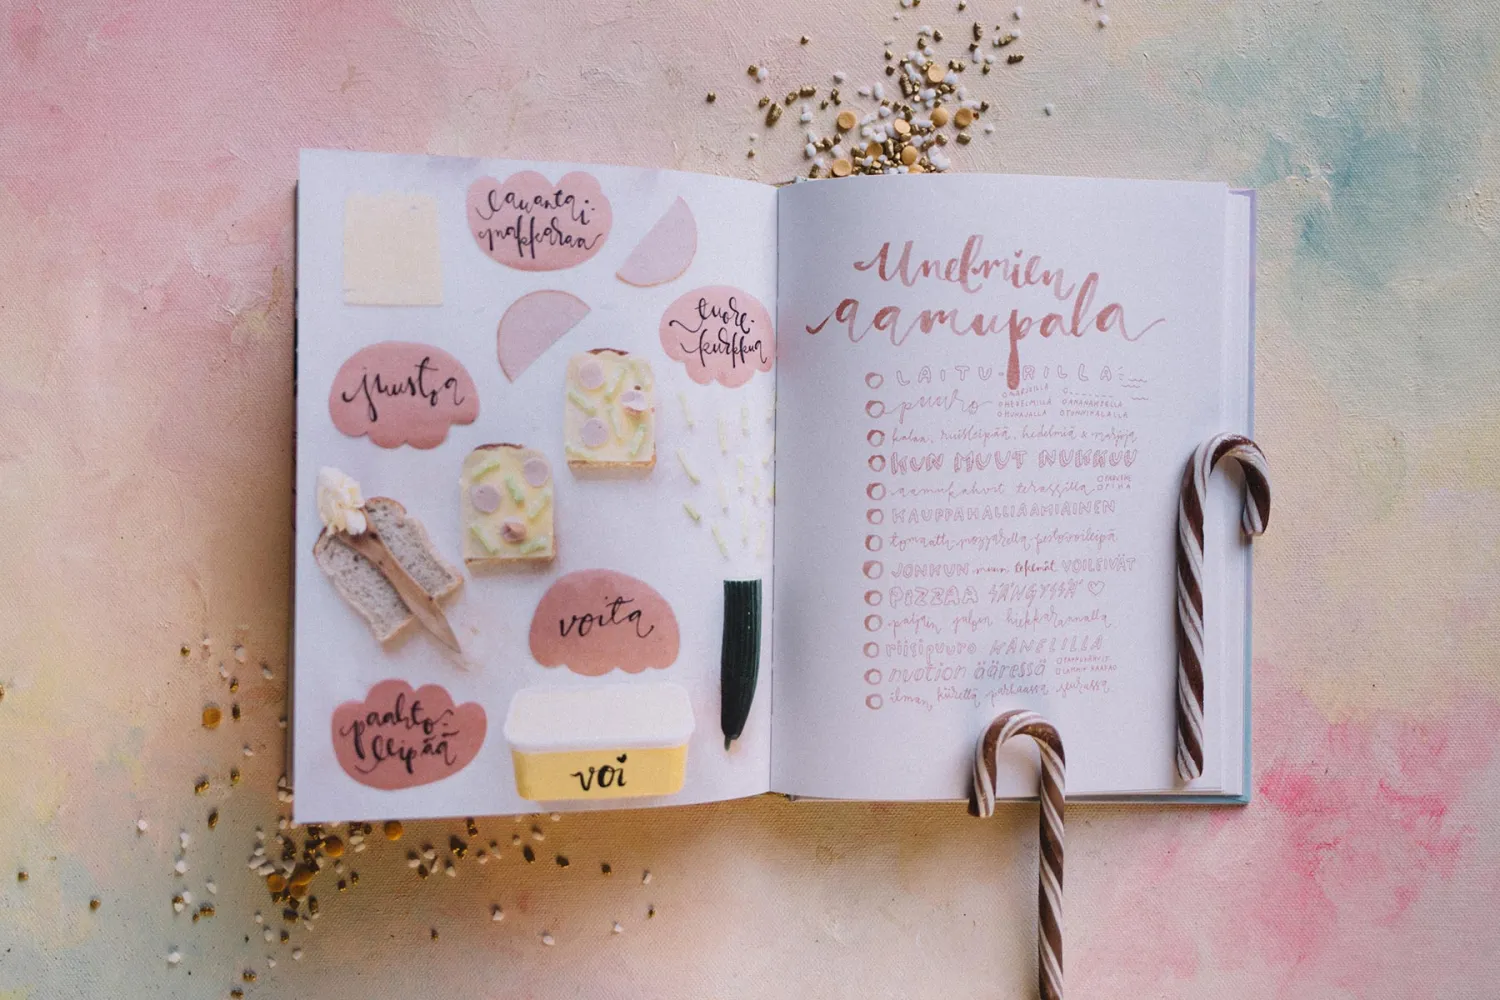 lauantai-
makkaraa
tuore-
kurkkua
juustoa
voita
paahto-
leipää
voi
Unelmien
aamupala
LAITURILLA
puuro
MARJOILLA
HEDELMILLÄ
MUNAJALLA
kalaa, ruisleipää, hedelmiä & marjoja
KUN MUUT NUKKUU
aamukahvit terassilla
KAUPPAHALLIAAMIAINEN
tomaatti-mozzarella-pestovoileipä
JONKUN muun tekemät VOILEIVÄT
PIZZAA SÄNGYSSÄ ♡
paljain jaloin hiekkarannalla
riisipuuro KANELILLA
nuotion ääressä
ilman kiirettä parhaassa seurassa